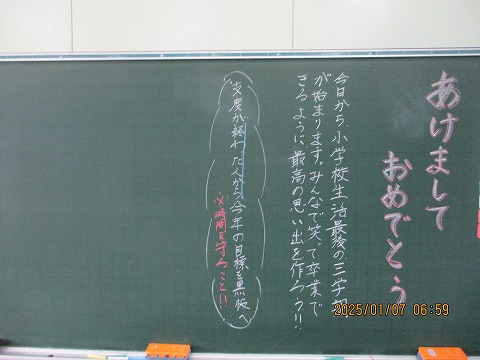 あけまして
おめでとう
今日から、小学校生活最後の三学期
が始まります。みんなで笑って卒業で
きるように、最高の思い出を作ろう!!
支度が終わった人から、今年の目標を黒板へ
※時間を守ること!!
2025/01/07 06:59